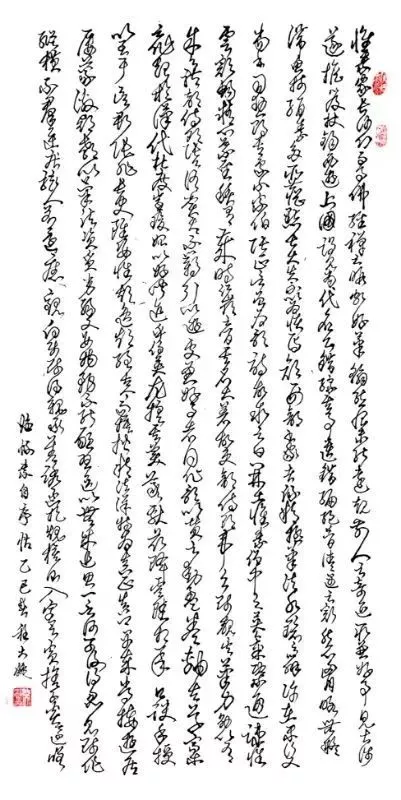 怀素家长沙幼而事佛经禅之暇颇好笔翰然恨未能远睹前人之奇迹所见甚浅
遂担笈杖锡西游上国谒见当代名公错综其事遗编绝简往往遇之豁然心胸略无疑
滞鱼笺绢素多所尘点士大夫不以为怪焉颜刑部书家者流精极笔法水镜之辨许在末行又以
尚书司勋郎卢象小宗伯张正言曾为歌诗故叙之曰开士怀素僧中之英气概通疏性
灵豁畅精心草圣积有岁时江岭之间其名大著故吏部侍郎韦公陟睹其笔力勖以有
成今礼部侍郎张公谓赏其不羁引以游处兼好事者同作歌以赞之动盈卷轴夫草稿
之作起于汉代杜度崔瑗始以妙闻迨乎伯英尤擅其美羲献兹降虞陆相承口诀手授
以至于吴郡张旭长史虽姿性颠逸超绝古今而模楷精法详特为真正真卿早岁常接游居
屡蒙激昂教以笔法资质劣弱又婴物务不能恳习迄以无成追思一言何可复得忽见师作
纵横不群迅疾骇人若还旧观向使师得亲承善诱函挹规模则入室之宾舍子奚适嗟
临怀素自序帖乙巳春程大